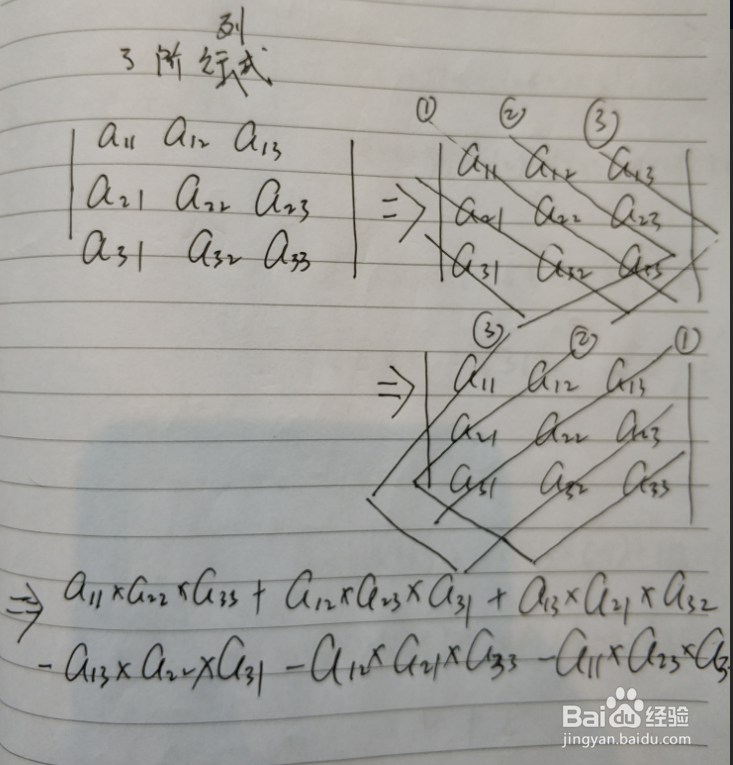 列
3阶行式
a11 a12 a13
a21 a22 a23
a31 a32 a33
① ② ③
⇒ a11 a12 a13
a21 a22 a23
a31 a32 a33
③ ② ①
⇒ a11 a12 a13
a21 a22 a23
a31 a32 a33
⇒ a11×a22×a33 + a12×a23×a31 + a13×a21×a32
- a13×a22×a31 - a12×a21×a33 - a11×a23×a3
Baidu经验
jingyan.baidu.com